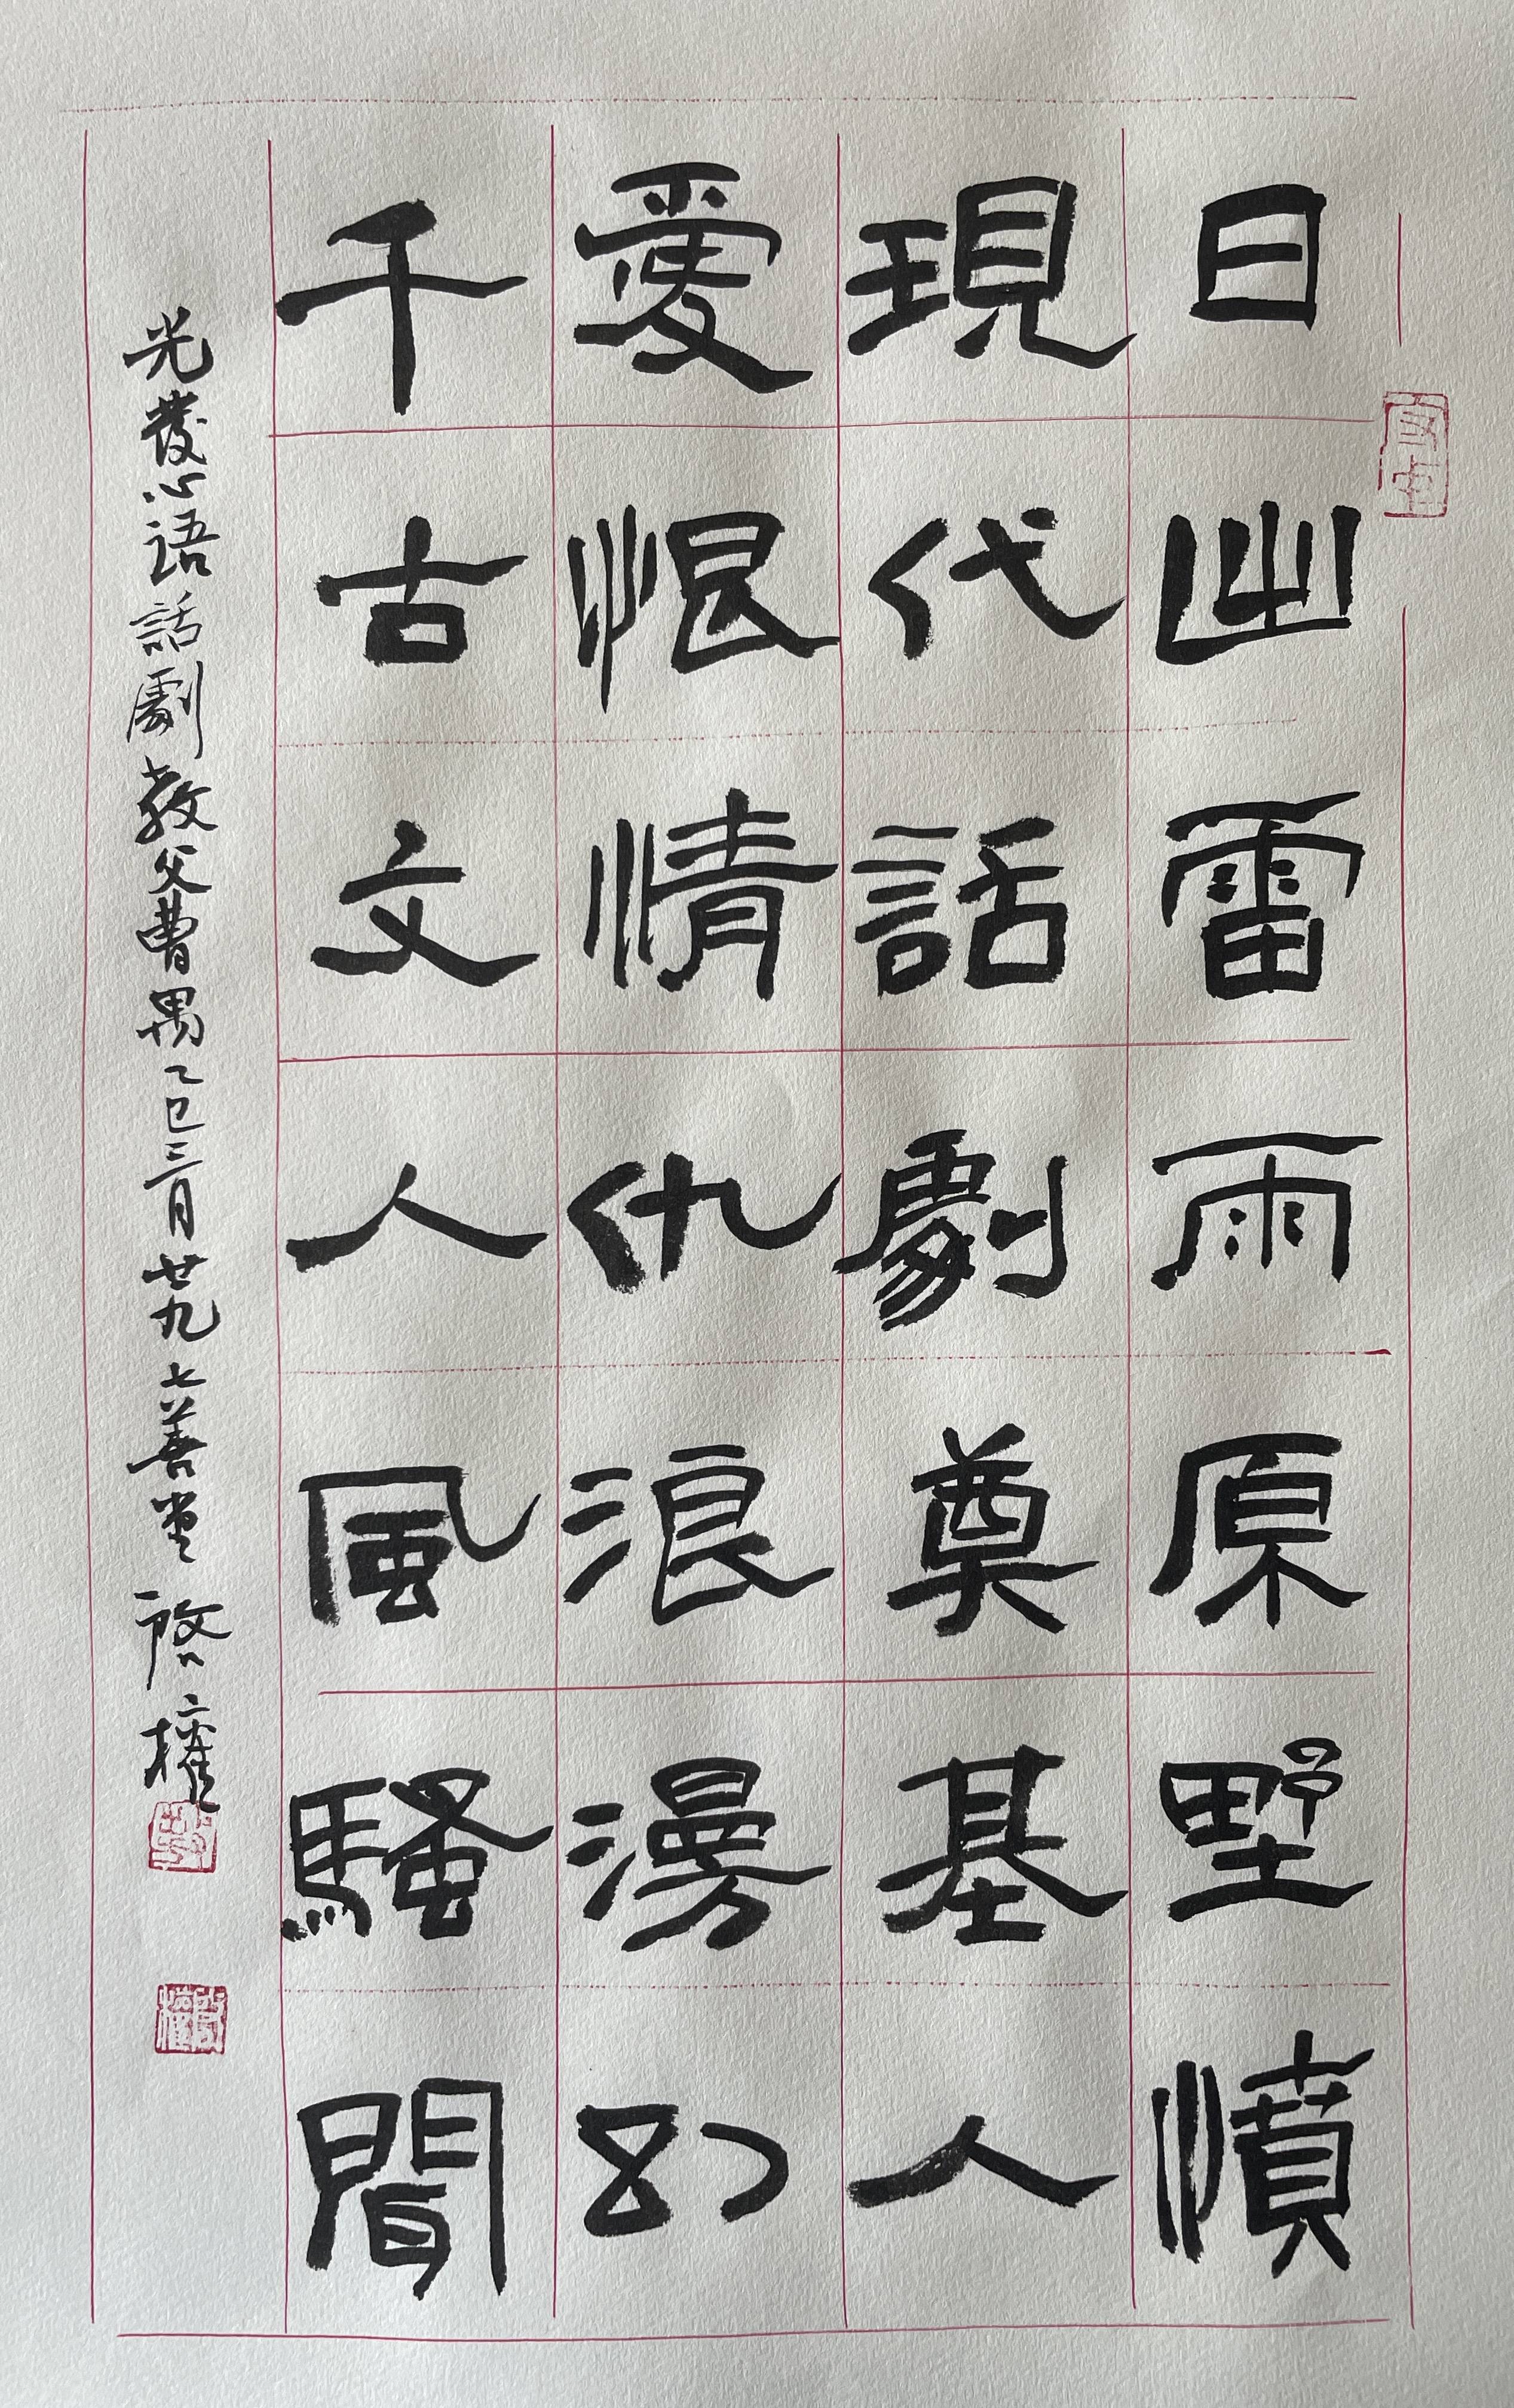 日出雷雨原野憤
現代話劇奠基人
愛恨情仇浪漫幻
千古文人風騷聞
光發心語話劇教父曹禺乙巳三月廿九七善堂啓權